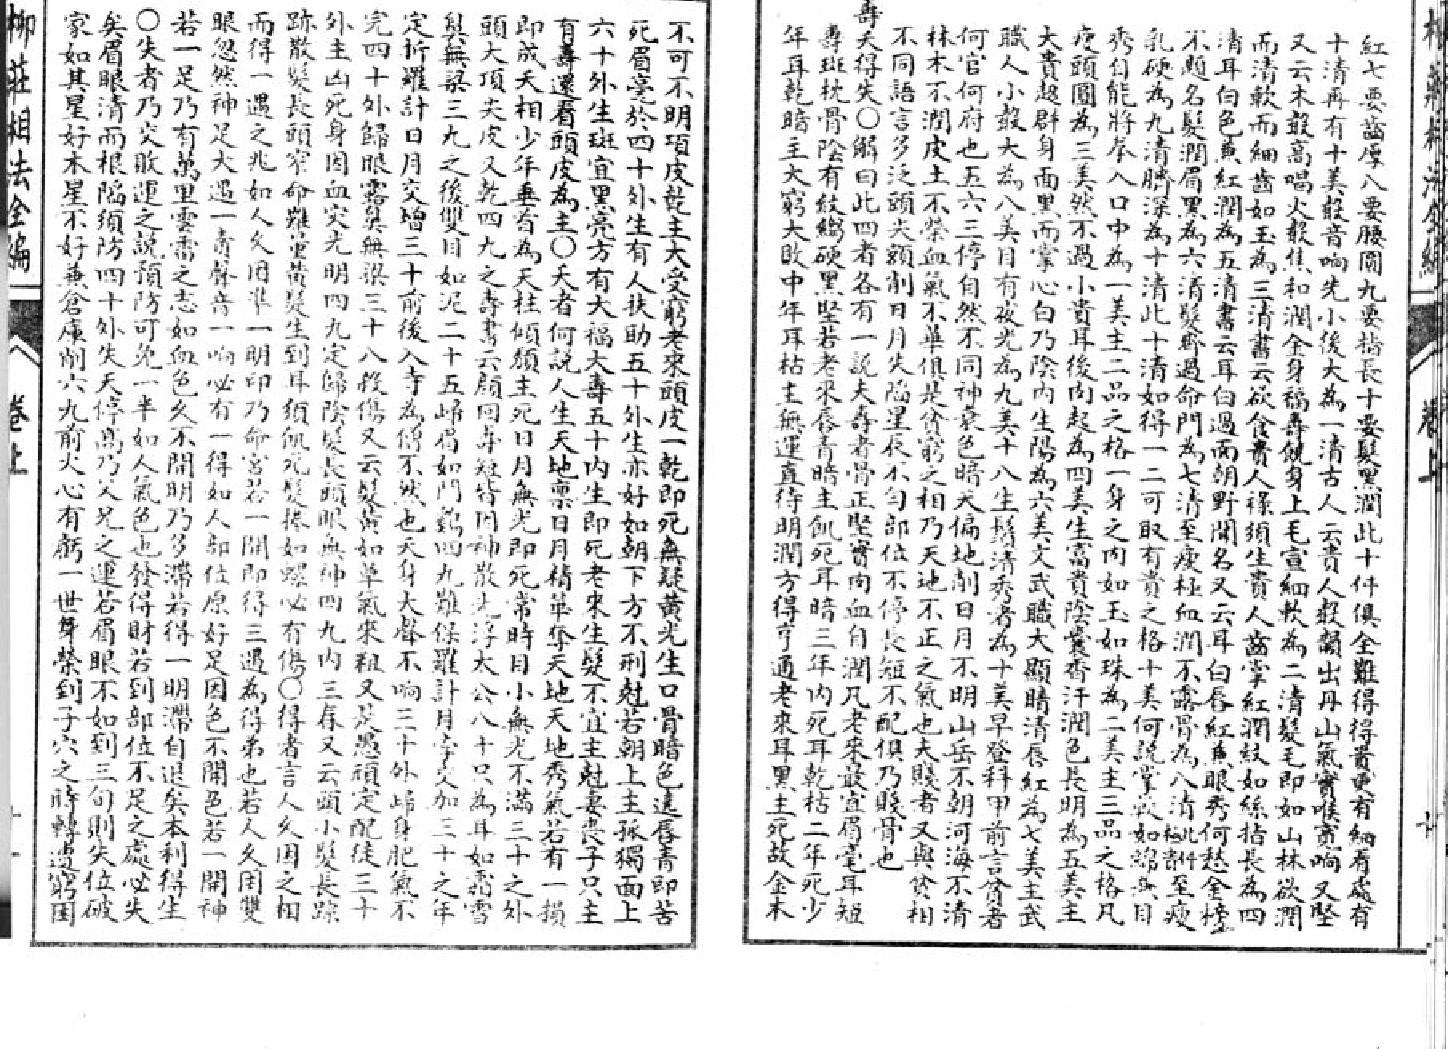 紅七要齒厚八要腰圓九要指長十要髮黑潤此十件俱全難得得貴更有細有處有
十清再有十美聲音响先小後大為一清古人云貴人聲韻出丹山氣實喉寬响又堅
又云木聲高唱火聲焦和潤金身福壽饒身上毛宜細軟為二清髮毛即如山林欲潤
而清軟而細齒如玉為三清書云欲食貴人祿須生貴人齒掌紅潤紋如絲指長為四
清耳白色兼紅潤為五清書云耳白過面朝野聞名又云耳白唇紅兼眼秀何愁金榜
不題名髮潤眉黑為六清髮齊過命門為七清至瘦極血潤不露骨為八清至瘦
乳硬為九清臍深為十清此十清如得一二可取有貴之格十美何說掌軟如綿無目
秀自能將拳入口中為一美主二品之格一身之肉如玉如珠為二美主三品之格凡
瘦頭圓為三美然不過小貴耳後肉起為四美生富貴陰囊香汗潤色長明為五美主
大貴越群身面黑而掌心白乃陰內生陽為六美文武職大顯睛清唇紅為七美主武
職人小聲大為八美目有夜光為九美十八生鬚清秀者為十美早登科甲前言貧者
何官何府也五六三停自然不同神衰色暗天偏地削日月不明山岳不朝河海不清
林木不潤皮土不榮血氣不華俱是貧窮之相乃天地不正之氣也夫賤者又與貧相
不同語言多泛頭尖額削日月失陷星辰不勻部位不停長短不配俱乃賤骨也
壽夭得失〇解曰此四者各有一說夫壽者骨正堅實肉血自潤凡老來最宜眉毫耳短
壽斑枕骨陰有紋縐硬黑堅若老來唇青暗主飢死耳暗三年內死耳乾枯二年死少
年耳乾暗主大窮大敗中年耳枯主無運直待明潤方得亨通老來耳黑主死故金木
不可不明項皮乾主大受窮老來頭皮一乾即死無疑黃光生口骨暗色連唇青即苦
死眉毫於四十外生有人扶助五十外生亦好如朝下方不刑尅若朝上主孤獨面上
六十外生斑宜黑亮方有大福大壽五十內生即死老來生髮不宜主尅妻喪子只主
有壽還看頭皮為主〇夭者何說人生天地稟日月精華奪天地天地秀氣若有一損
即成夭相少年垂首為天柱傾頹主死日月無光即死常時目小無光不滿三十之外
頭大頂尖皮又乾四九之壽書云顏回壽短皆因神散光浮太公八十只為耳如霜雪
鼻無梁三九之後雙目如泥二十五歸眉如門雞四九難保羅計月孛交加三十之年
定折羅計日月交增三十前後入寺為僧不然也夭身大聲不响三十外歸身肥氣不
完四十外歸眼露鼻無梁三十八救傷又云髮黃如草氣來粗又是愚頑定配徒三十
外主凶死身因血突光明四九定歸陰髮長頭眼無神四九內三春又云頭小髮長踪
跡散髮長頭窄命難量黃髮生到耳須飢死髮捲如螺必有傷〇得者言人久困之相
而得一遇之兆如人久困準一明印乃命宮若一開即得三遇為得弟也若人久困雙
眼忽然神足大遇一壽聲音一响必有一得如人部位原好足因色不開色若一開神
若一足乃有萬里雲霄之志如血色久不開明乃多滯若得一明滯自退矣本利得生
〇失者乃交敗運之說預防可免一半如人氣色也發得財若到部位不足之處必失
矣眉眼清而根陷須防四十外失天停高乃父兄之運若眉眼不如到三旬則失位破
家如其星好木星不好兼倉庫削六九前火心有虧一世窮榮到子穴之時轉遭窮困
柳莊相法全編
卷上
十一